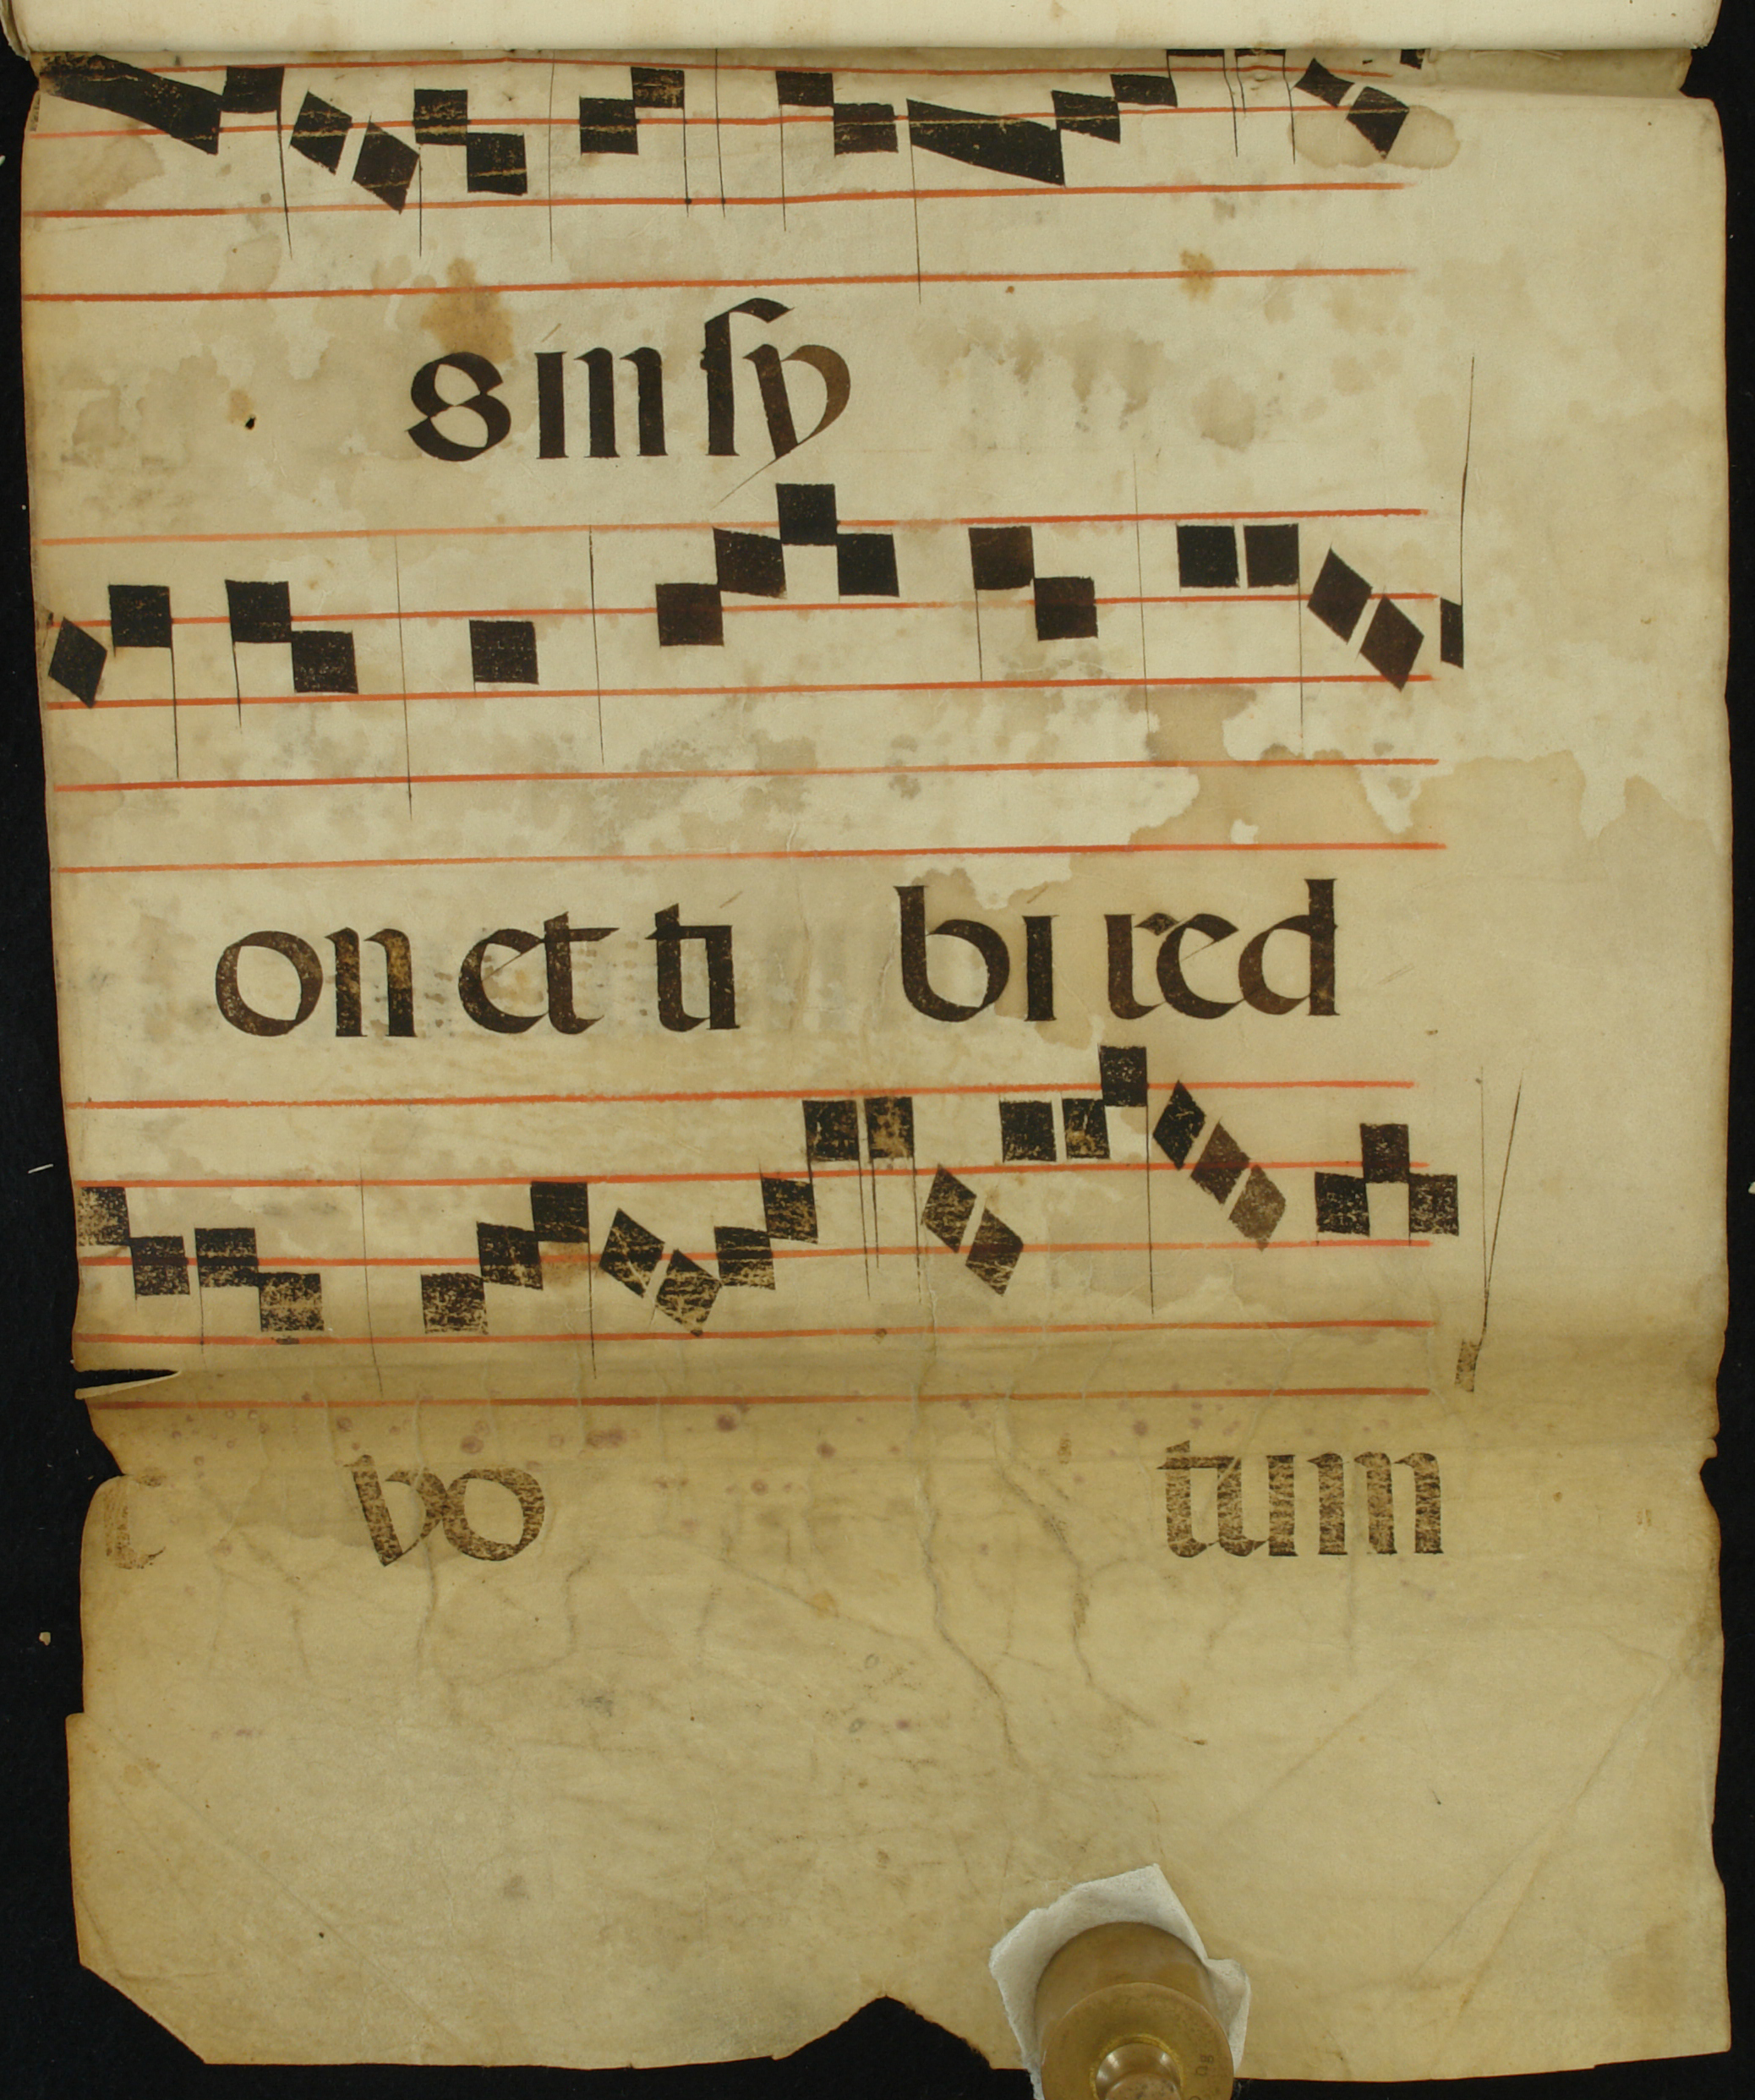 s in sy
on et ti bi red
vo tum